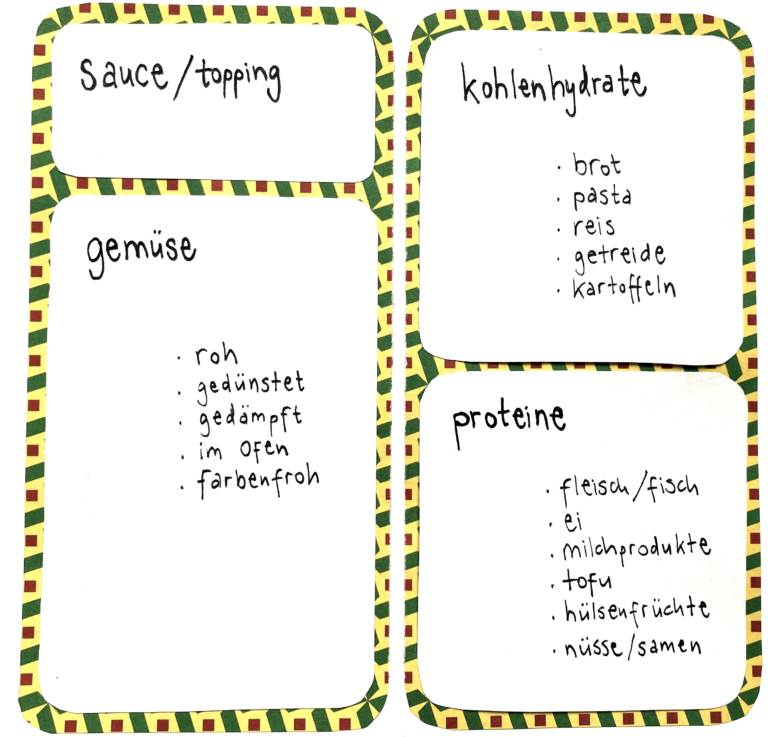 sauce/topping
gemüse
· roh
· gedünstet
· gedämpft
· im Ofen
· farbenfroh
kohlenhydrate
· brot
· pasta
· reis
· getreide
· kartoffeln
proteine
· fleisch/fisch
· ei
· milchprodukte
· tofu
· hülsenfrüchte
· nüsse/samen